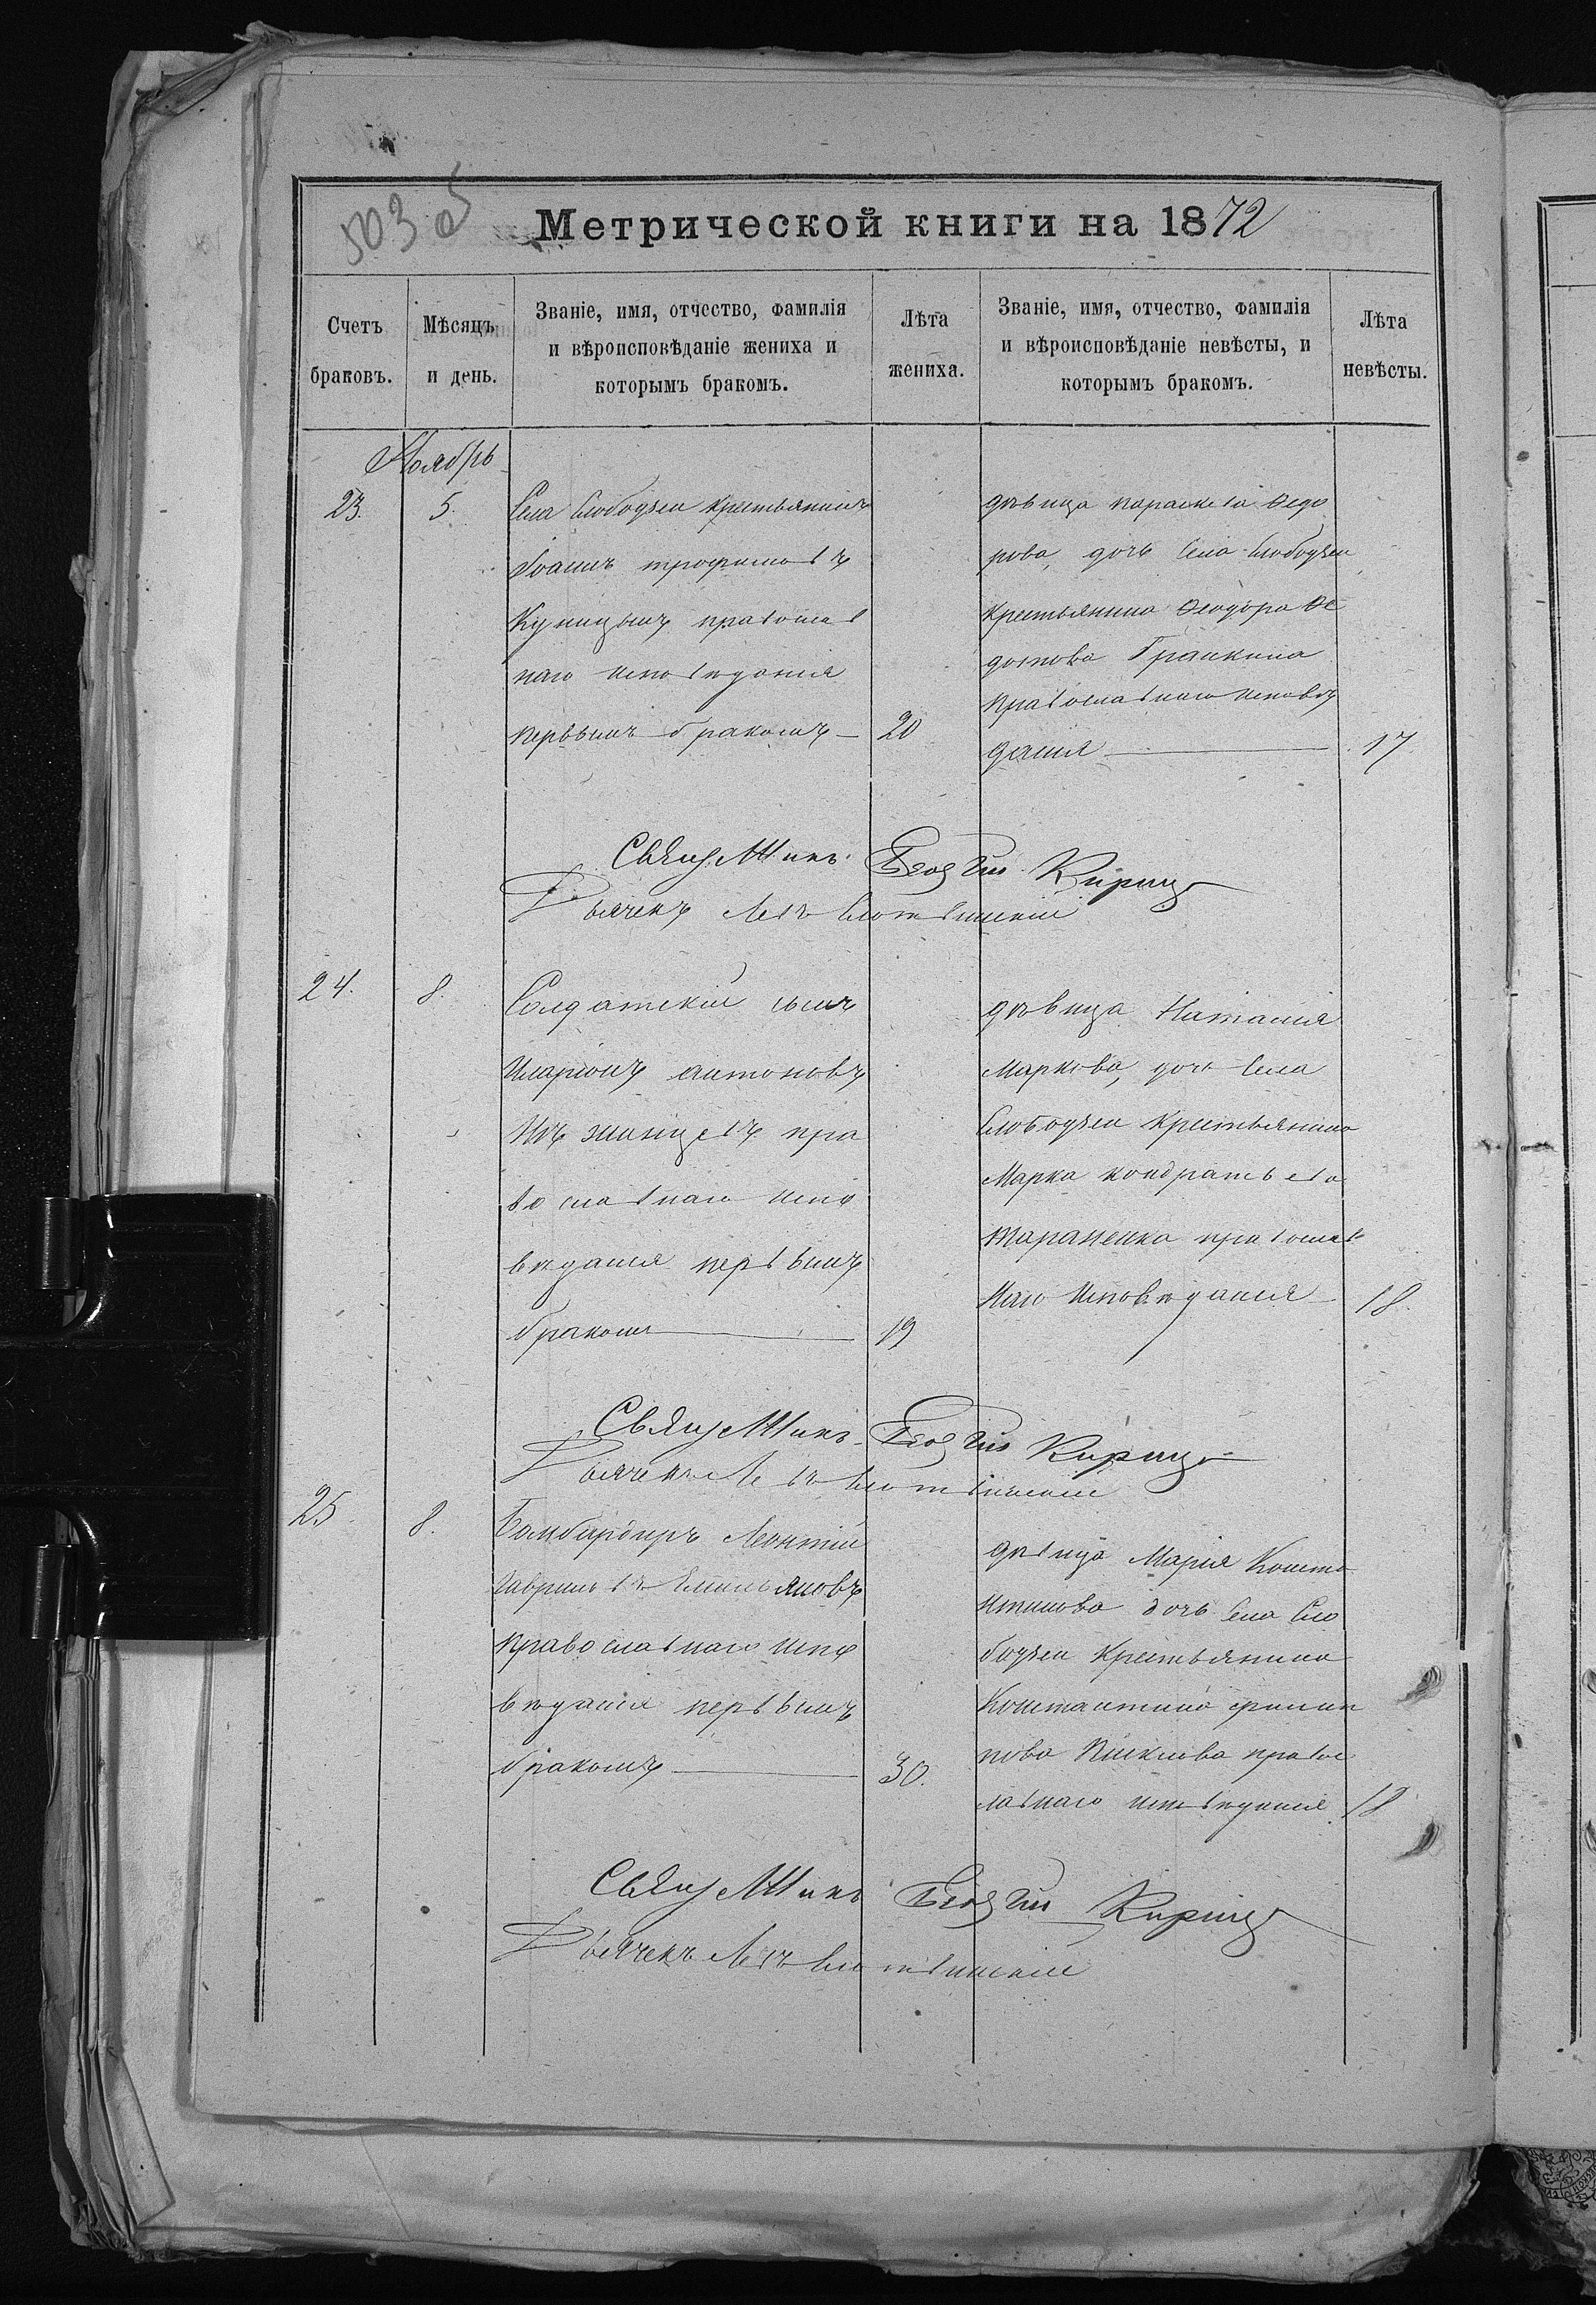 503 об
Метрической книги на 1872
Счетъ браковъ.
Мѣсяцъ и день.
Званіе, имя, отчество, фамилія
и вѣроисповѣданіе жениха и
которымъ бракомъ.
Лѣта жениха.
Званіе, имя, отчество, фамилія
и вѣроисповѣданіе невѣсты, и
которымъ бракомъ.
Лѣта невѣсты.
Ноябрь
23. 5.
Села Слободзеи крестьянинъ
Іоаннъ трофимовъ
Куницынъ православ
наго исповѣданія
первымъ бракомъ —
20
дѣвица параскева Ѳедо
рова, дочь Села Слободзеи
Крестьянина Ѳеодора Ѳе
дотова
православнаго исповѣ
данія —
17
Священникъ Георгій Кирица
Дьячекъ Левъ
24. 8.
Солдатскій сынъ
Иларіонъ антоновъ
пра
вославнаго испо
вѣданія первымъ
бракомъ —
19
дѣвица Наталія
Маркова, дочь Села
Слободзеи крестьянина
Марка кондратьева
Тараненка православ
наго исповѣданія —
18.
Священникъ Георгій Кирица
Дьячекъ Левъ
25. 8.
Бамбардиръ Леонтій
Гаврииловъ Емельяновъ
православнаго испо
вѣданія первымъ
бракомъ —
30.
дѣвица Марія Конста
нтинова дочь Села Сло
бодзеи Крестьянина
Константина филип
пова правос
лавнаго исповѣданія
18
Священникъ Георгій Кирица
Дьячекъ Левъ